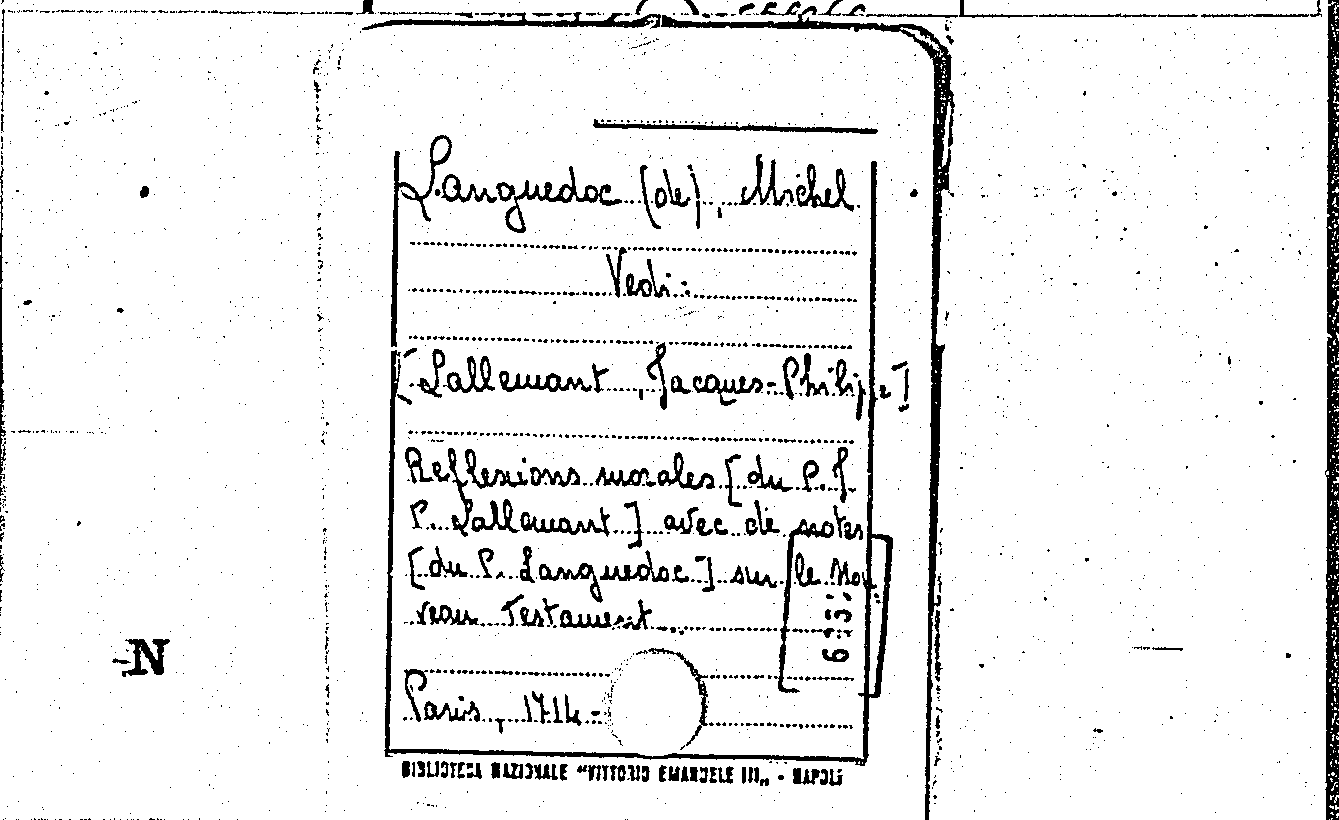 Languedoc (de), Michel
Vedi:
[Lallemant, Jacques-Philippe]
Reflexions morales [du P. J.
P. Lallemant] avec de notes
[du P. Languedoc] sur le Nou
veau Testament...
Paris, 1714-
BIBLIOTECA NAZIONALE "VITTORIO EMANUELE III" - NAPOLI
N